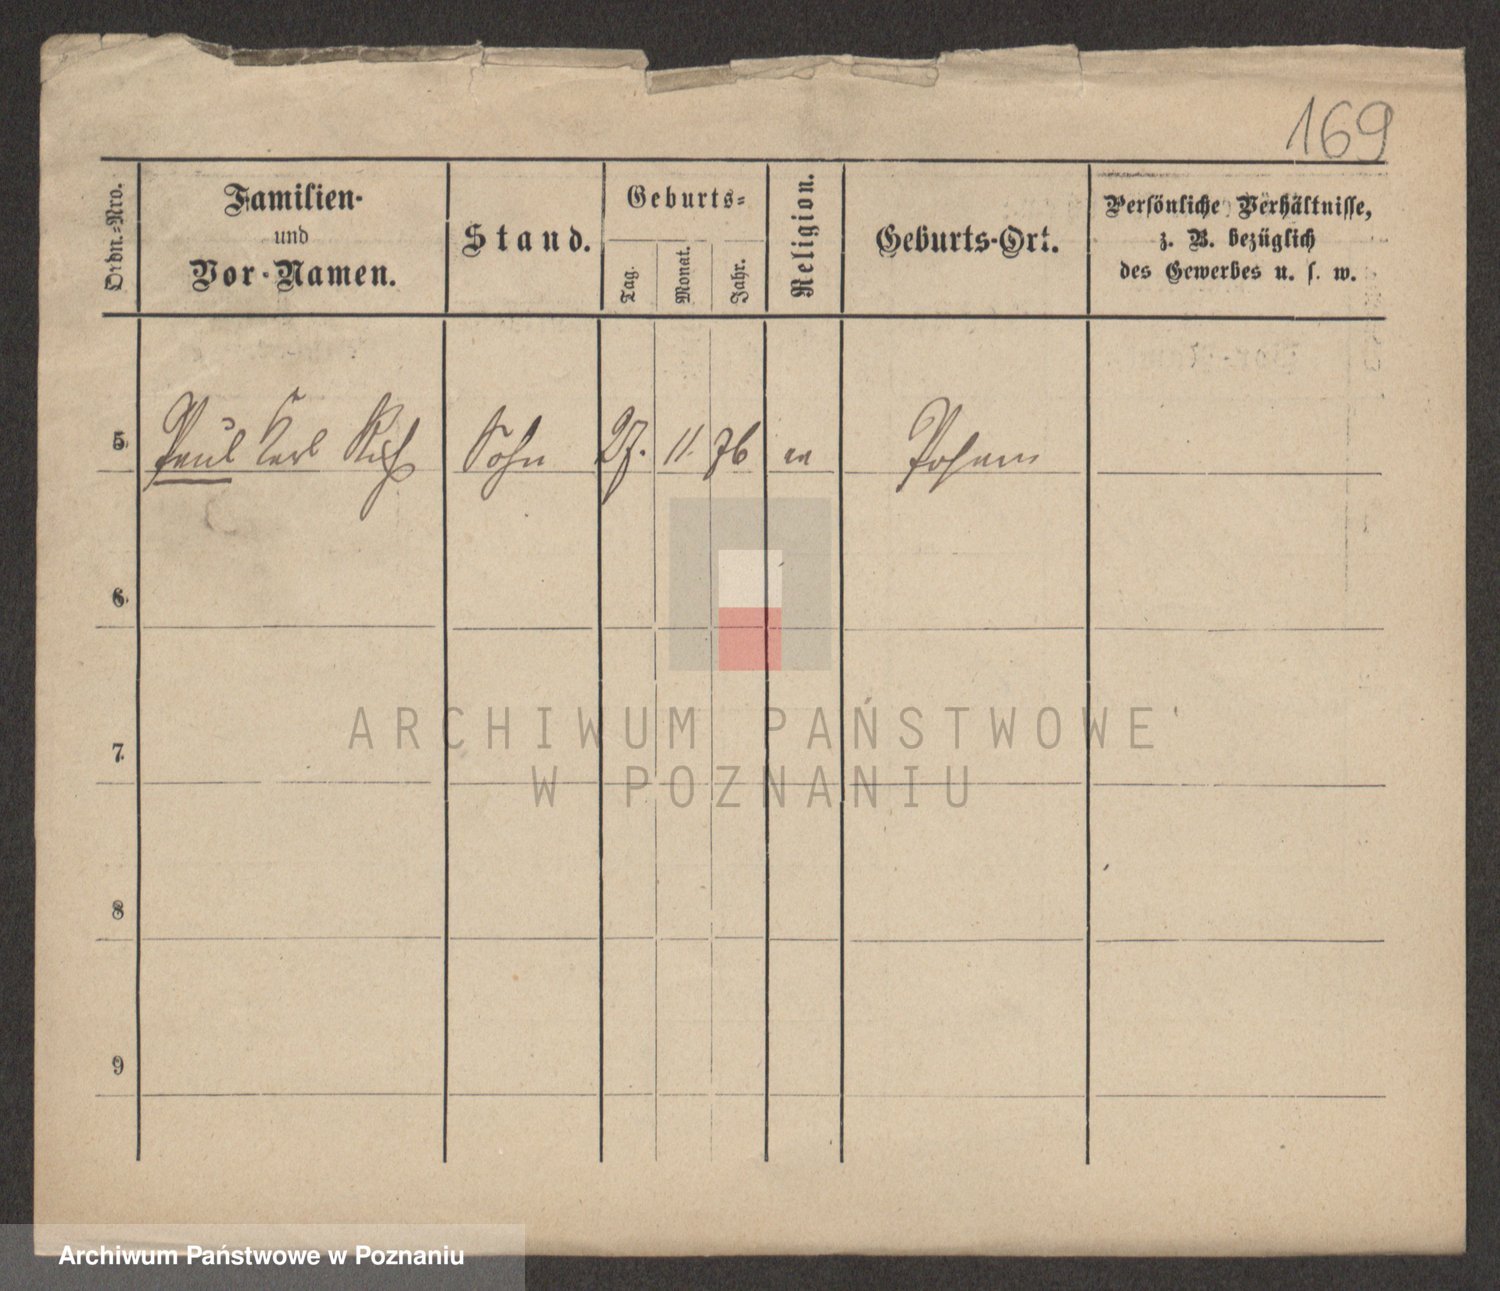 169
Ordn.-Nro.
Familien-
und
Vor-Namen.
Stand.
Geburts-
Tag.
Monat.
Jahr.
Religion.
Geburts-Ort.
Persönliche Verhältnisse,
z. B. bezüglich
des Gewerbes u. s. w.
5. Paul Karl Sohn 27. 11. 76
6.
7.
8
9
ARCHIWUM PAŃSTWOWE
W POZNANIU
Archiwum Państwowe w Poznaniu